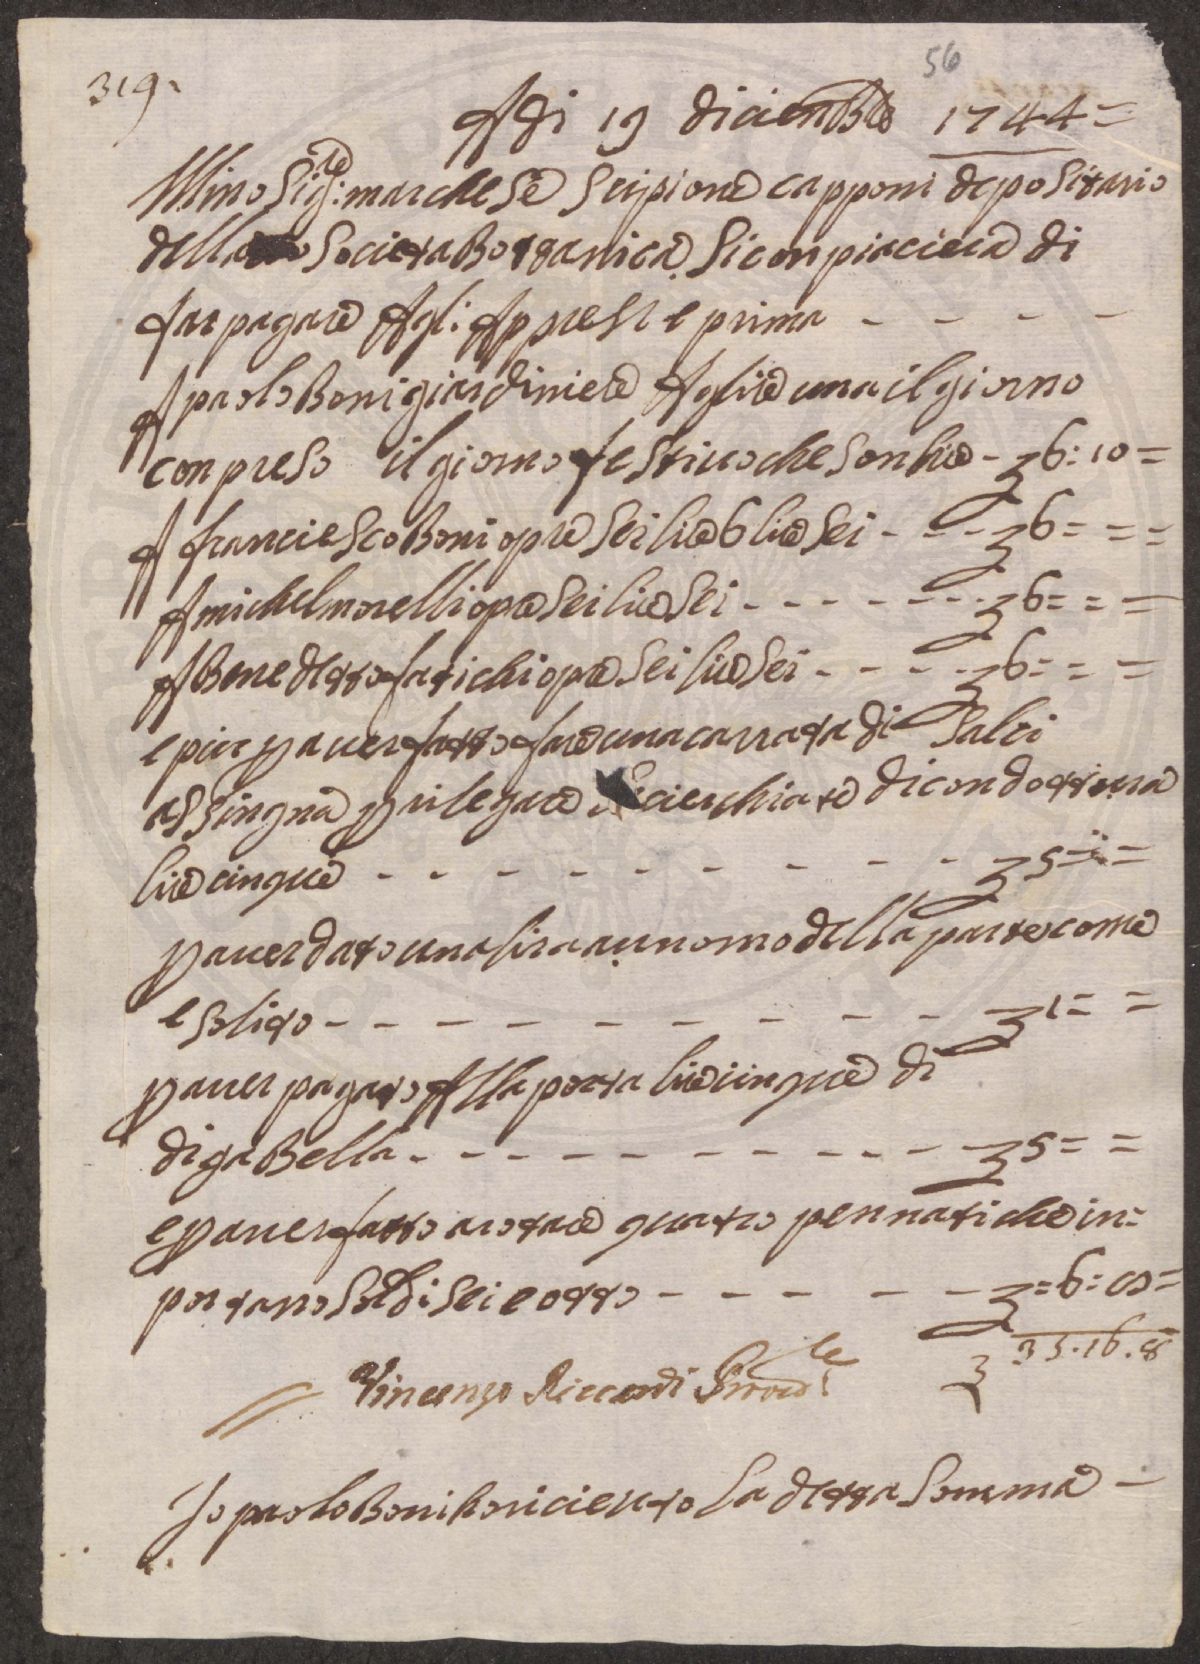 56
319.
A di 19 diciembre 1744=
Illmo Sigre: marchese Scipione capponi depositario
della Societa Bottanica Si conpiaciera di
far pagare Agli: Appresi e prima - - - -
A paolo Boni giardiniere A lire una il giorno
conpreso il giorno festiuo che son lire - £ 6: 10 =
A franciesco Boni opre Sei lire 6 lire Sei - = - £ 6 = = =
A michel morelli opre Sei lire Sei - - - - - - - £ 6 = = =
A Benedetto fatichi opre Sei lire Sei - - - - £ 6 = = =
e piu p auer fatto fare una carrata di Salci
p rilegare Sicierchiate di condottura
lire cinque - - - - - - - - - £ 5 = =
p auer dato una lira a un omo della parte come
e Solito - - - - - - - - - - - - £ 1 = =
p auer pagato Alla porta lire cinque di
di gaBella - - - - - - - - - - - £ 5 = =
e p auer fatto arotare quatro pennati che in=
portano Soldi Sei e otto - - - - - - £ = 6: 8 =
£ 35.16.8
Vincenzo Riccardi Provre
Io paolo Boni ho riceuto La detta Somma -